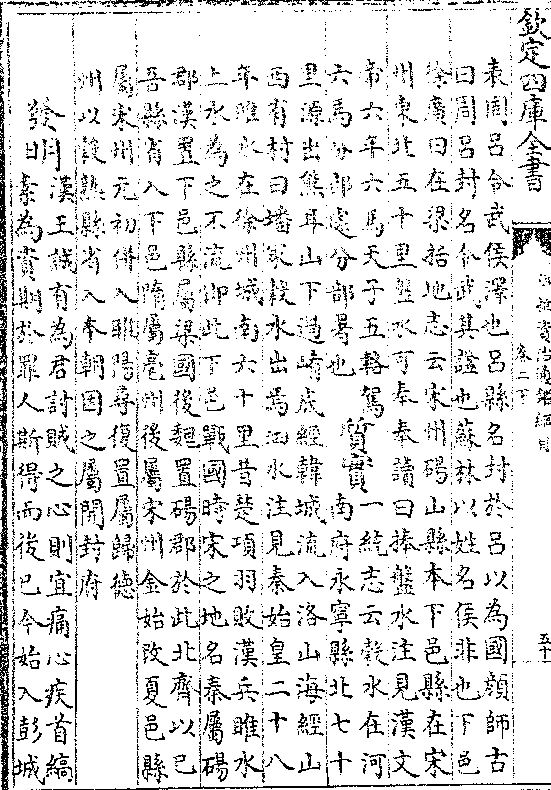 欽定四庫全書
御批資治通鑑綱目
卷二下
五十
表周呂令武侯澤也呂縣名封於呂以為國顔師古
曰周呂封名令武其諡也蘇林以姓名侯非也下邑
徐廣曰在梁括地志云宋州碭山縣本下邑縣在宋
州東北五十里盤水可奉奉讀曰捧盤水注見漢文
帝六年六馬天子五輅駕
六馬分部處分部署也質實一統志云穀水在河
南府永寧縣北七十
里源出熊耳山下過崤底經韓城流入洛山海經山
西有村曰墦冢穀水出焉泗水注見秦始皇二十八
年睢水在徐州城南六十里昔楚項羽敗漢兵睢水
上水為之不流即此下邑戰國時宋之地名秦屬碭
郡漢置下邑縣屬梁國後魏置碭郡於此北齊以巳
吾縣省入下邑隋屬亳州後屬宋州金始改夏邑縣
屬宋州元初併入睢陽尋復置屬歸德
州以穀熟縣省入本朝因之屬開封府
發明漢王誠有為君討賊之心則宜痛心疾首縞
素為資期於罪人斯得而後已今始入彭城